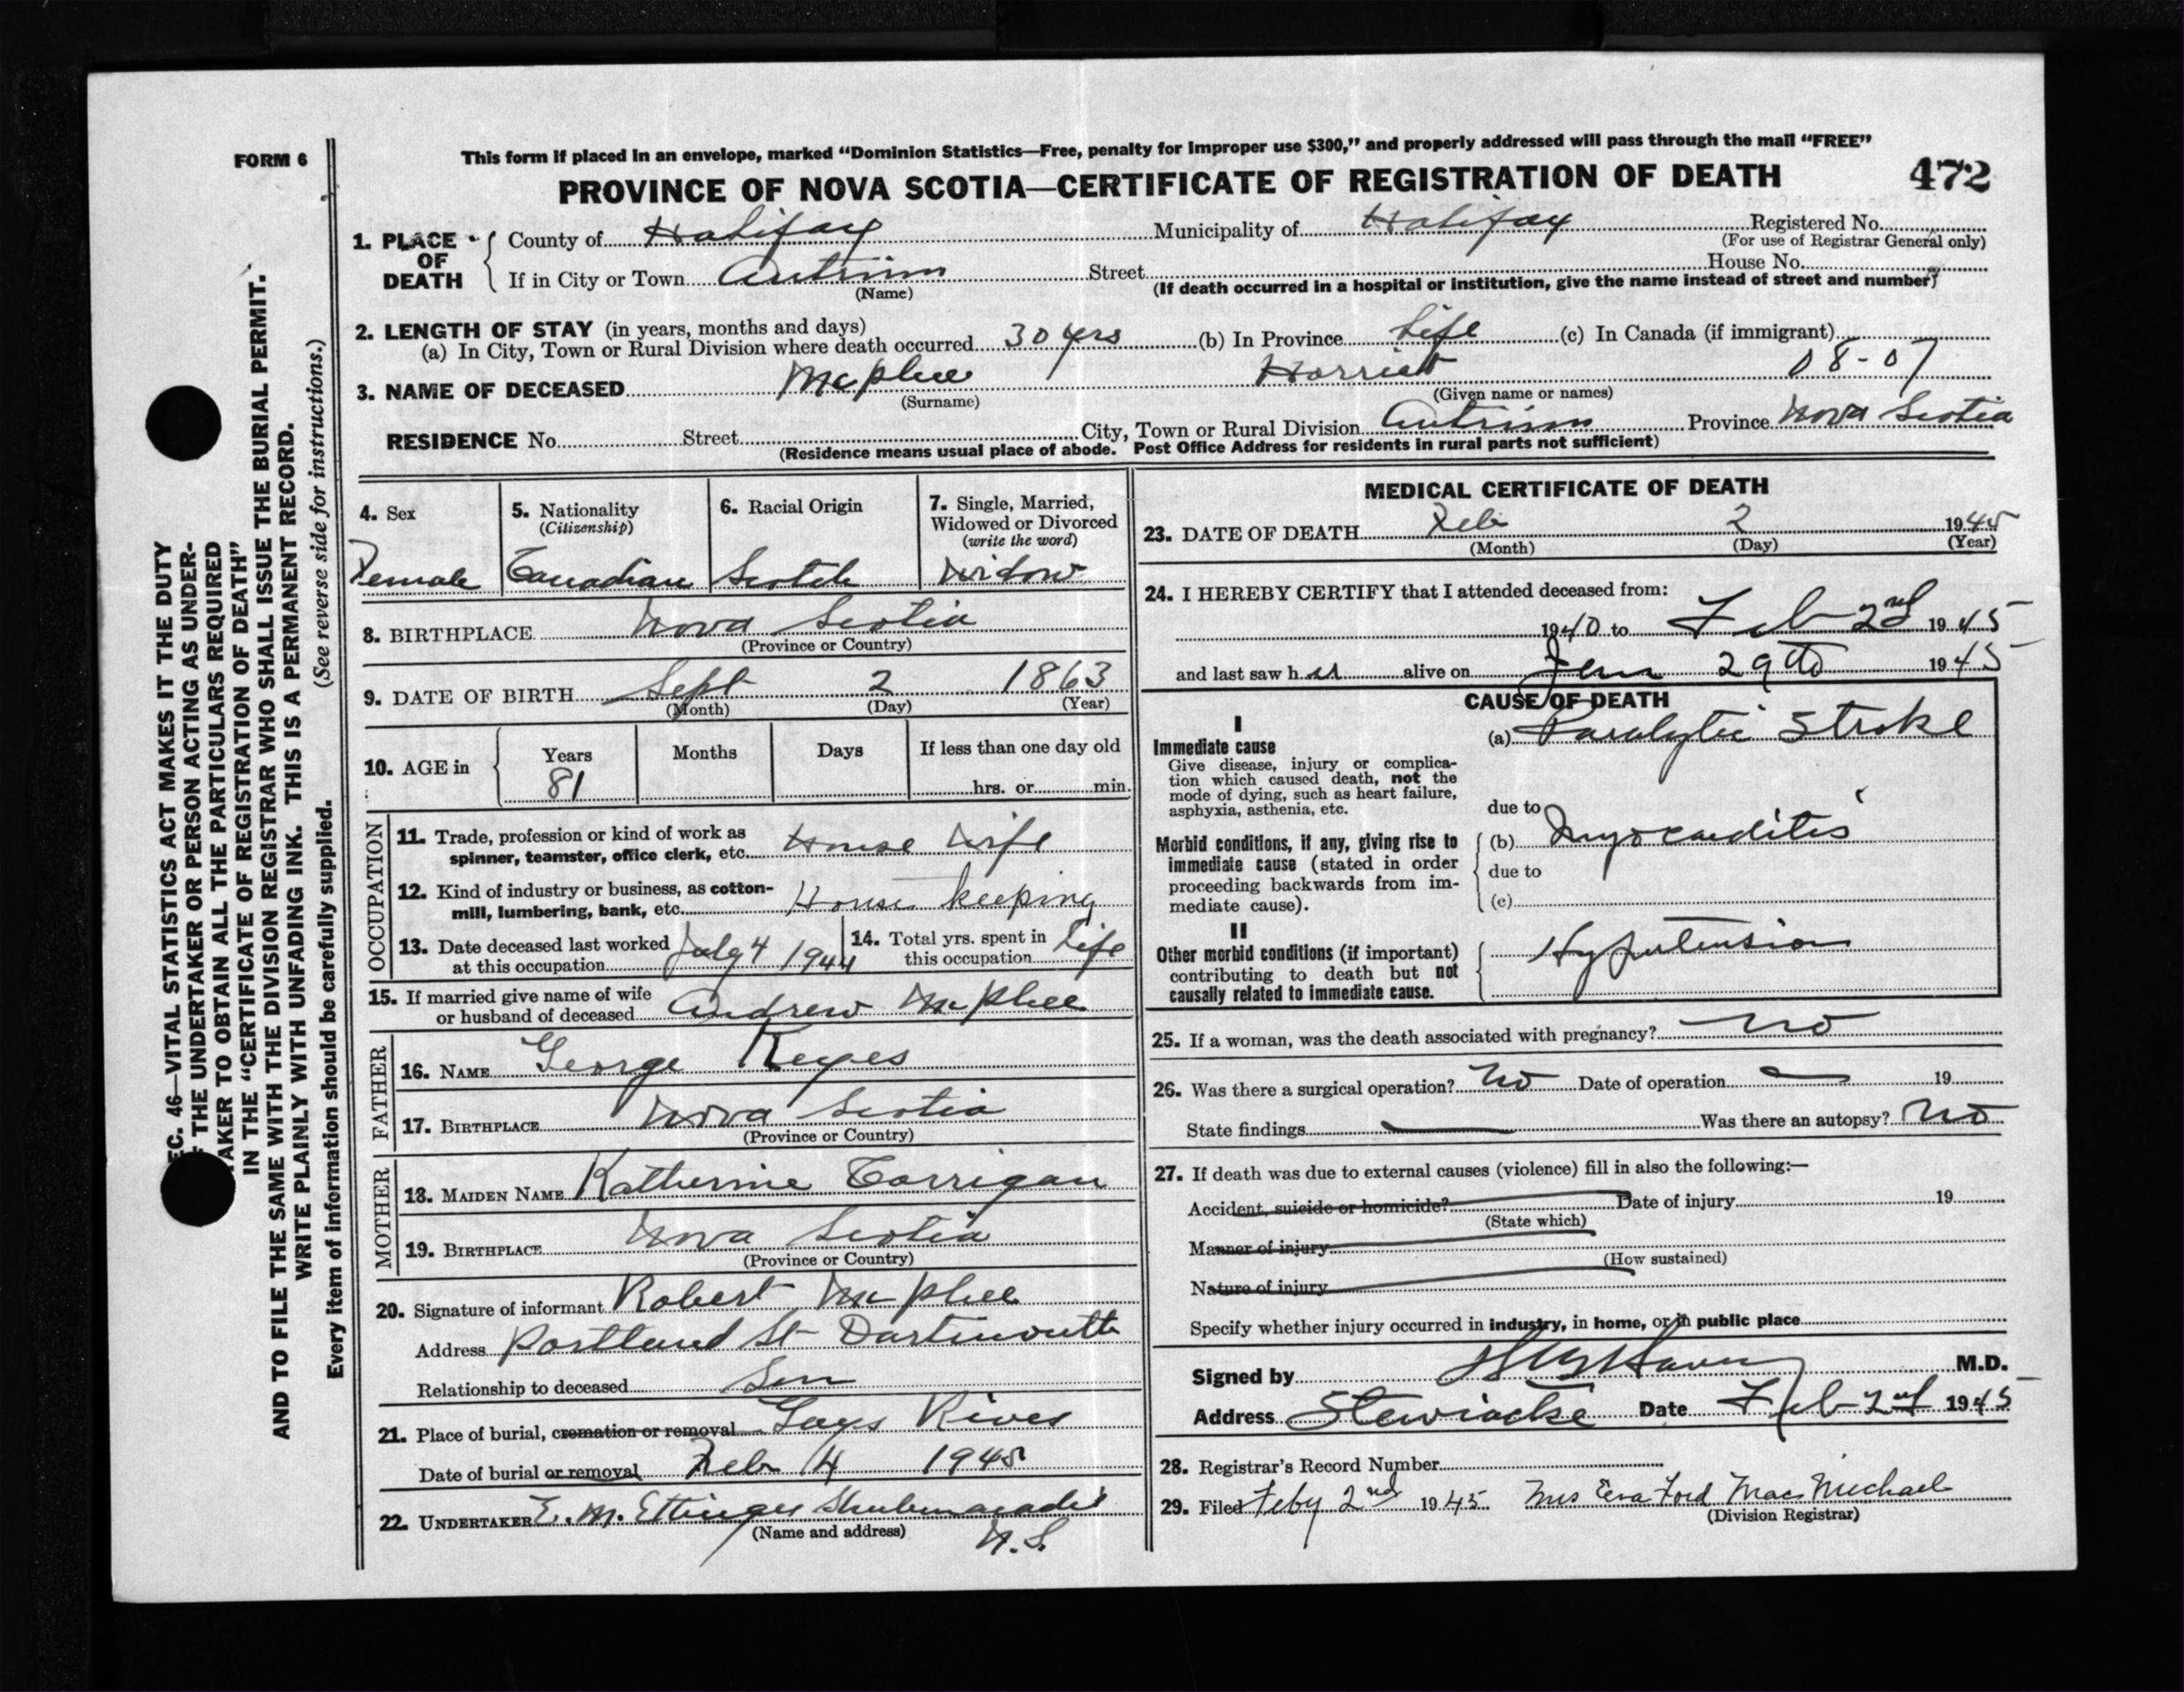 FORM 6
This form if placed in an envelope, marked “Dominion Statistics—Free, penalty for improper use $300,” and properly addressed will pass through the mail “FREE”
PROVINCE OF NOVA SCOTIA—CERTIFICATE OF REGISTRATION OF DEATH
472
1. PLACE OF DEATH
County of Halifax Municipality of Halifax Registered No.
(For use of Registrar General only)
If in City or Town Antrim Street House No.
(Name) (If death occurred in a hospital or institution, give the name instead of street and number)
2. LENGTH OF STAY (in years, months and days)
(a) In City, Town or Rural Division where death occurred 30 yrs (b) In Province Life (c) In Canada (if immigrant)
08-07
3. NAME OF DECEASED McPhee Harriet
(Surname) (Given name or names)
RESIDENCE No. Street City, Town or Rural Division Antrim Province Nova Scotia
(Residence means usual place of abode. Post Office Address for residents in rural parts not sufficient)
4. Sex
Female
5. Nationality
(Citizenship)
Canadian
6. Racial Origin
Scotch
7. Single, Married,
Widowed or Divorced
(write the word)
Widow
8. BIRTHPLACE Nova Scotia
(Province or Country)
9. DATE OF BIRTH Sept 2 1863
(Month) (Day) (Year)
10. AGE in Years Months Days If less than one day old
81 hrs. or min.
OCCUPATION
11. Trade, profession or kind of work as
spinner, teamster, office clerk, etc. House Wife
12. Kind of industry or business, as cotton-
mill, lumbering, bank, etc. House keeping
13. Date deceased last worked
at this occupation July 4 1944
14. Total yrs. spent in
this occupation Life
15. If married give name of wife
or husband of deceased Andrew McPhee
FATHER
16. NAME George Keyes
17. BIRTHPLACE Nova Scotia
(Province or Country)
MOTHER
18. MAIDEN NAME Katherine Corrigan
19. BIRTHPLACE Nova Scotia
(Province or Country)
20. Signature of informant Robert McPhee
Address Portland St Dartmouth
Relationship to deceased Son
21. Place of burial, cremation or removal Gays River
Date of burial or removal Feb 4 1945
22. UNDERTAKER E. M. Ettinger Shubenacadie
(Name and address) N.S.
MEDICAL CERTIFICATE OF DEATH
23. DATE OF DEATH Feb 2 1945
(Month) (Day) (Year)
24. I HEREBY CERTIFY that I attended deceased from:
1940 to Feb 2nd 1945
and last saw her alive on Jan 29th 1945
CAUSE OF DEATH
I
Immediate cause
Give disease, injury or complica-
tion which caused death, not the
mode of dying, such as heart failure,
asphyxia, asthenia, etc.
(a) Paralytic Stroke
due to
Morbid conditions, if any, giving rise to
immediate cause (stated in order
proceeding backwards from im-
mediate cause).
(b) Myocarditis
due to
(c)
II
Other morbid conditions (if important)
contributing to death but not
causally related to immediate cause.
Hypertension
25. If a woman, was the death associated with pregnancy? no
26. Was there a surgical operation? No Date of operation — 19
State findings — Was there an autopsy? No
27. If death was due to external causes (violence) fill in also the following:—
Accident, suicide or homicide? Date of injury 19
(State which)
Manner of injury
(How sustained)
Nature of injury
Specify whether injury occurred in industry, in home, or in public place
Signed by M.D.
Address Stewiacke Date Feb 2nd 1945
28. Registrar’s Record Number
29. Filed Feby 2nd 1945 Mrs Eva Ford MacMichael
(Division Registrar)
EC. 46—VITAL STATISTICS ACT MAKES IT THE DUTY
THE UNDERTAKER OR PERSON ACTING AS UNDER-
TAKER TO OBTAIN ALL THE PARTICULARS REQUIRED
IN THE “CERTIFICATE OF REGISTRATION OF DEATH”
AND TO FILE THE SAME WITH THE DIVISION REGISTRAR WHO SHALL ISSUE THE BURIAL PERMIT.
WRITE PLAINLY WITH UNFADING INK. THIS IS A PERMANENT RECORD.
(See reverse side for instructions.)
Every item of information should be carefully supplied.